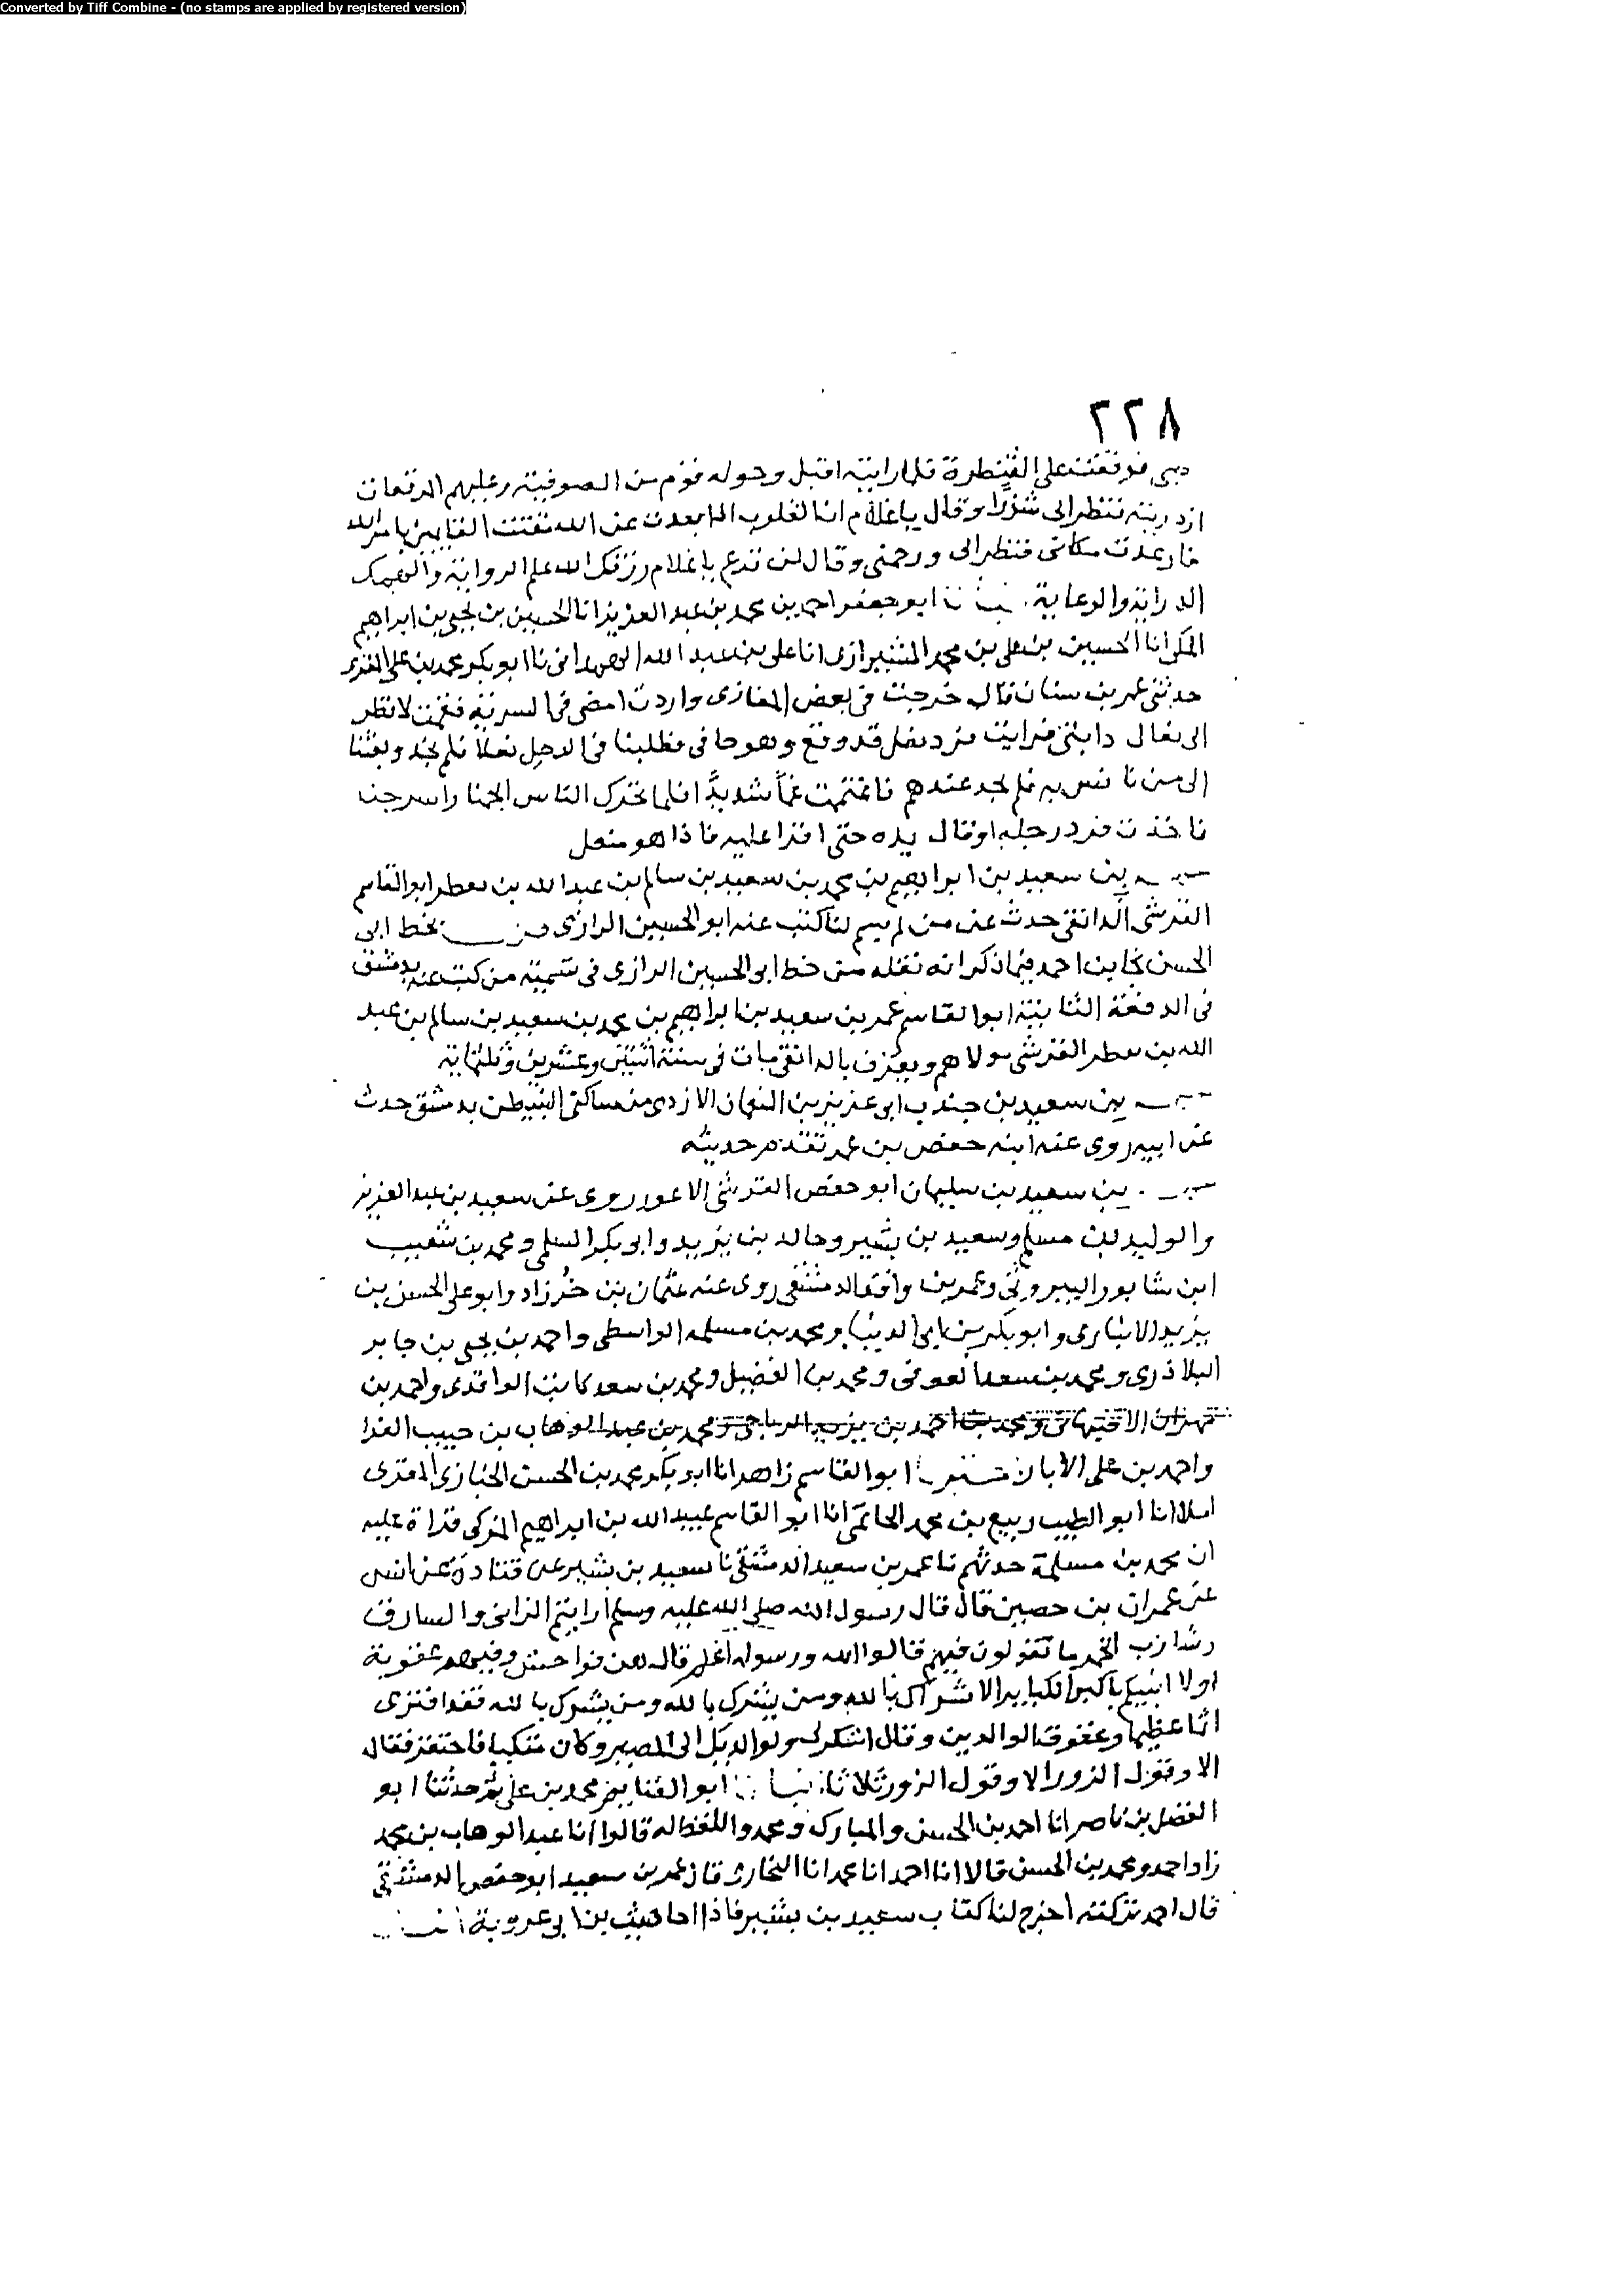 Converted by Tiff Combine - (no stamps are applied by registered version)
٢٢٨
دبى فوقفت على القنطرة فلما رايته اقبل وحوله قوم من الصوفية وعليهم المرقعات
ازدريته فنظر الى شزرا وقال يا غلام انا لقلوب اذا بعدت عن الله مقتت القايمين بامر الله
فارعدت مكانى فنظر الى ورحمنى وقال لن ترع يا غلام رزقك الله علم الرواية والهمك
الدراية والرعاية ابو جعفر احمد بن محمد بن عبد العزيز انا الحسين بن يحيى بن ابراهيم
المكى انا الحسين بن على بن محمد الشيرازى انا على بن عبد الله الهمدانى نا ابو بكر محمد بن على
حدثنى عمر بن سنان قال خرجت فى بعض المغازى واردت امضى فى السرية فقمت لانظر
الى نعال دابتى فرايت فرد نعل قد وقع وهو حافى فطلبنا فى الرحل نعلا فلم نجد وبعثنا
الى من نا نس به فلم نجد عندهم فاغتممت غما شديدا فلما تحرك الناس الجمنا واسرجنا
فاخذت فرد رجله اوقال يده حتى اقرا عليه فاذا هو منعل
بن سعيد بن ابراهيم بن محمد بن سعيد بن سالم بن عبد الله بن يعطر ابو القاسم
القرشى الدانقى حدث عن من لم يسم لنا كتب عنه ابو الحسين الرازى بخط ابى
الحسن نجا بن احمد فيما ذكر انه نقله من خط ابو الحسين الرازى فى تسمية من كتب عنه بدمشق
فى الدفعة الثانية ابو القاسم عمر بن سعيد بن ابراهيم بن محمد بن سعيد بن سالم بن عبد
الله بن يعطر القرشى مولاهم ويعرف بالدانقى مات فى سنة اثنتين وعشرين وثلثماية
بن سعيد بن جندب ابو عزيز بن النعمان الازدى من ساكنى النيبطن بدمشق حدث
عن ابيه روى عنه ابنه حفص بن عمر تقدم حديثه
بن سعيد بن سليمان ابو حفص القرشى الاعور روى عن سعيد بن عبد العزيز
والوليد بن مسلم وسعيد بن بشير وخالد بن يزيد وابو بكر السلمى ومحمد بن شعيب
ابن شابور البيروتى وعمر بن واقد الدمشقى روى عنه عثمان بن خرزاد وابو على الحسن بن
يزيد الانبارى وابو بكر بن ابى الدنيا ومحمد بن مسلمه الواسطى واحمد بن يحيى بن جابر
البلاذرى ومحمد بن سعد العوفى ومحمد بن الفضيل ومحمد بن سعد كاتب الواقدى واحمد بن
مهران الاصبهانى ومحمد بن احمد بن يزيد الرياحى ومحمد بن عبد الوهاب بن حبيب الفرا
واحمد بن على الابار ابو القاسم زاهر انا ابو بكر محمد بن الحسن الخبازى المقرى
املا انا ابو الطيب ربيع بن محمد الحاتمى انا ابو القاسم عبيد الله بن ابراهيم المزكى قراة عليه
ان محمد بن مسلمة حدثهم نا عمر بن سعيد الدمشقى نا سعيد بن بشير عن قتادة عن انس
عن عمران بن حصين قال قال رسول الله صلى الله عليه وسلم ارايتم الزانى والسارق
وشارب الخمر ما تقولون فيهم قالوا الله ورسوله اعلم قال هن فواحش وفيهم عقوبة
اولا انبيكم باكبر الكباير الاشراك بالله ومن يشرك بالله ومن يشرك بالله فقد افترى
اثما عظيما وعقوق الوالدين وقال اشكر لى ولوالديك الى المصير وكان متكيا فاحتفز فقال
الا وقول الزور الا وقول الزور ثلاثا ابو الغنايم محمد بن على ثم حدثنا ابو
الفضل بن ناصر انا احمد بن الحسن والمبارك ومحمد واللفظ له قالوا انا عبد الوهاب بن محمد
زاد احمد ومحمد بن الحسن قالا انا احمد انا محمد انا البخارى قال عمر بن سعيد ابو حفص الدمشقى
قال احمد تركته اخرج لنا كتاب سعيد بن بشير فاذا احاديث بن ابى عروبة